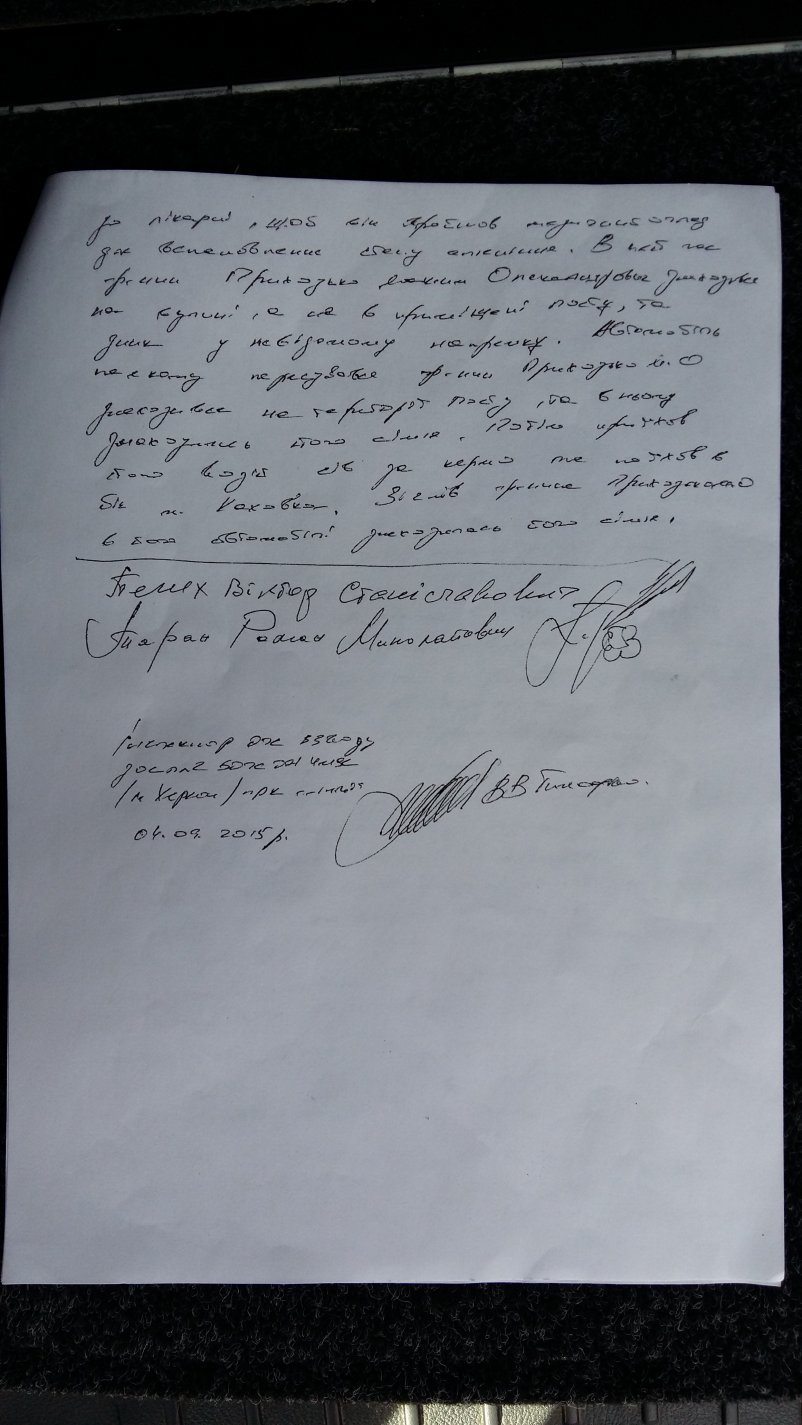 до лікарні, щоб він пройшов медичний огляд
для встановлення стану сп'яніння. В цей час
гр-нин Приходько Олександрович знаходився
на вулиці, а не в приміщені посту, та
зник у невідомому напрямку. Автомобіль
на якому пересувався гр-нин Приходько О
знаходився на території посту, та в ньому
знаходилась його сім'я. Потім приїхав
його водій сів за кермо та поїхав в
бік м. Каховка. Зі слів гр-нина Приходька О
в його автомобілі знаходилась його сім'я.
Віктор Станіславович
Таран Роман Миколайович
Інспектор ДПС взводу
/м Херсон/
04.09.2015р.
В В